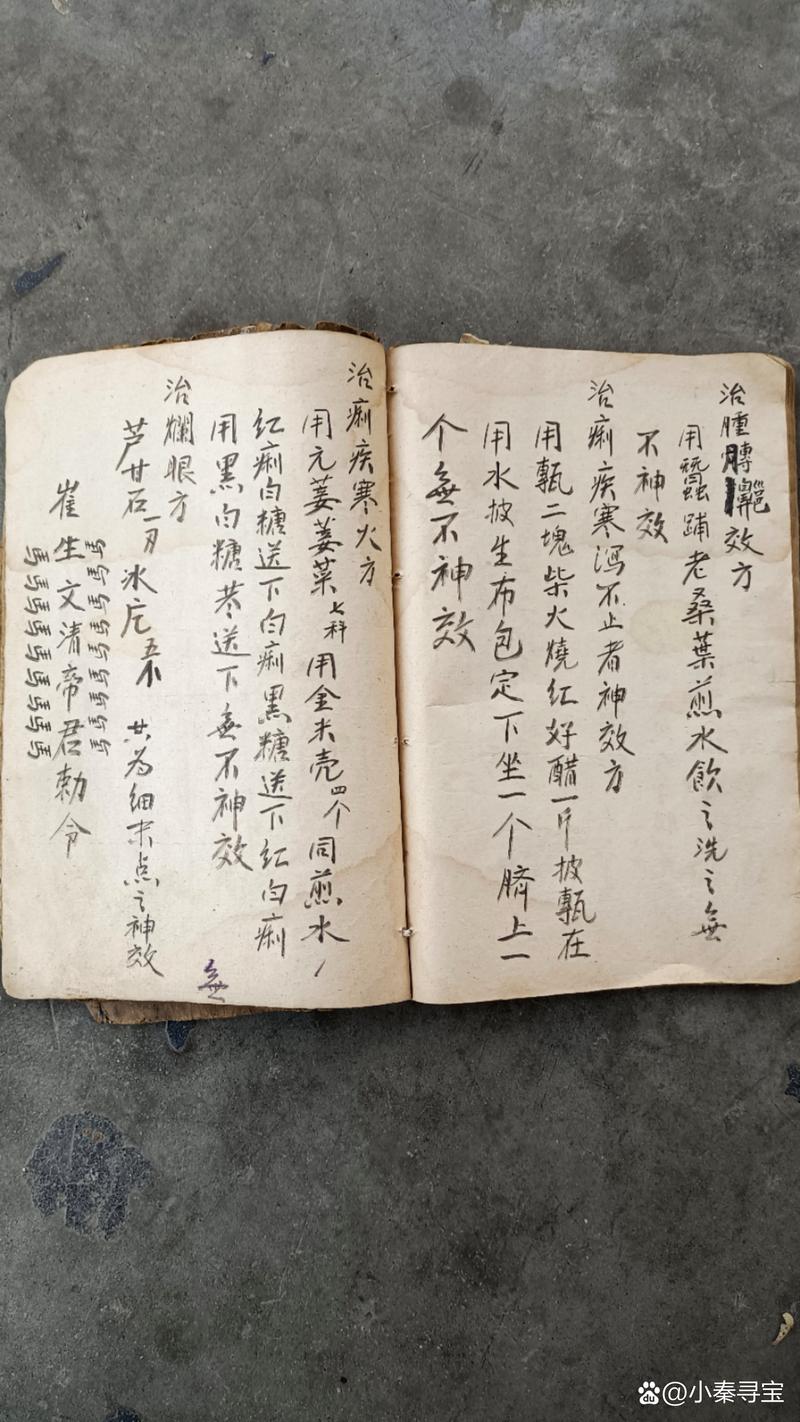 治腫膊效方
用蠶踊老桑葉煎水飲之洗之無
不神效
治痢疾寒瀉不止者神效方
用甎二塊柴火燒红好醋一斤披甎在
用水披生布包定下坐一个臍上一
个無不神效
治痢疾寒火方
用元荽荽菜七科用金米壳四个同煎水
红痢白糖送下白痢黑糖送下红白痢
用黑白糖送下無不神效
無
治爛眼方
芦甘石一刀冰片共为细末点之神效
馬馬馬馬馬馬馬馬馬
崔生文清帝君勅令
馬馬馬馬馬馬馬馬馬
@小秦寻宝